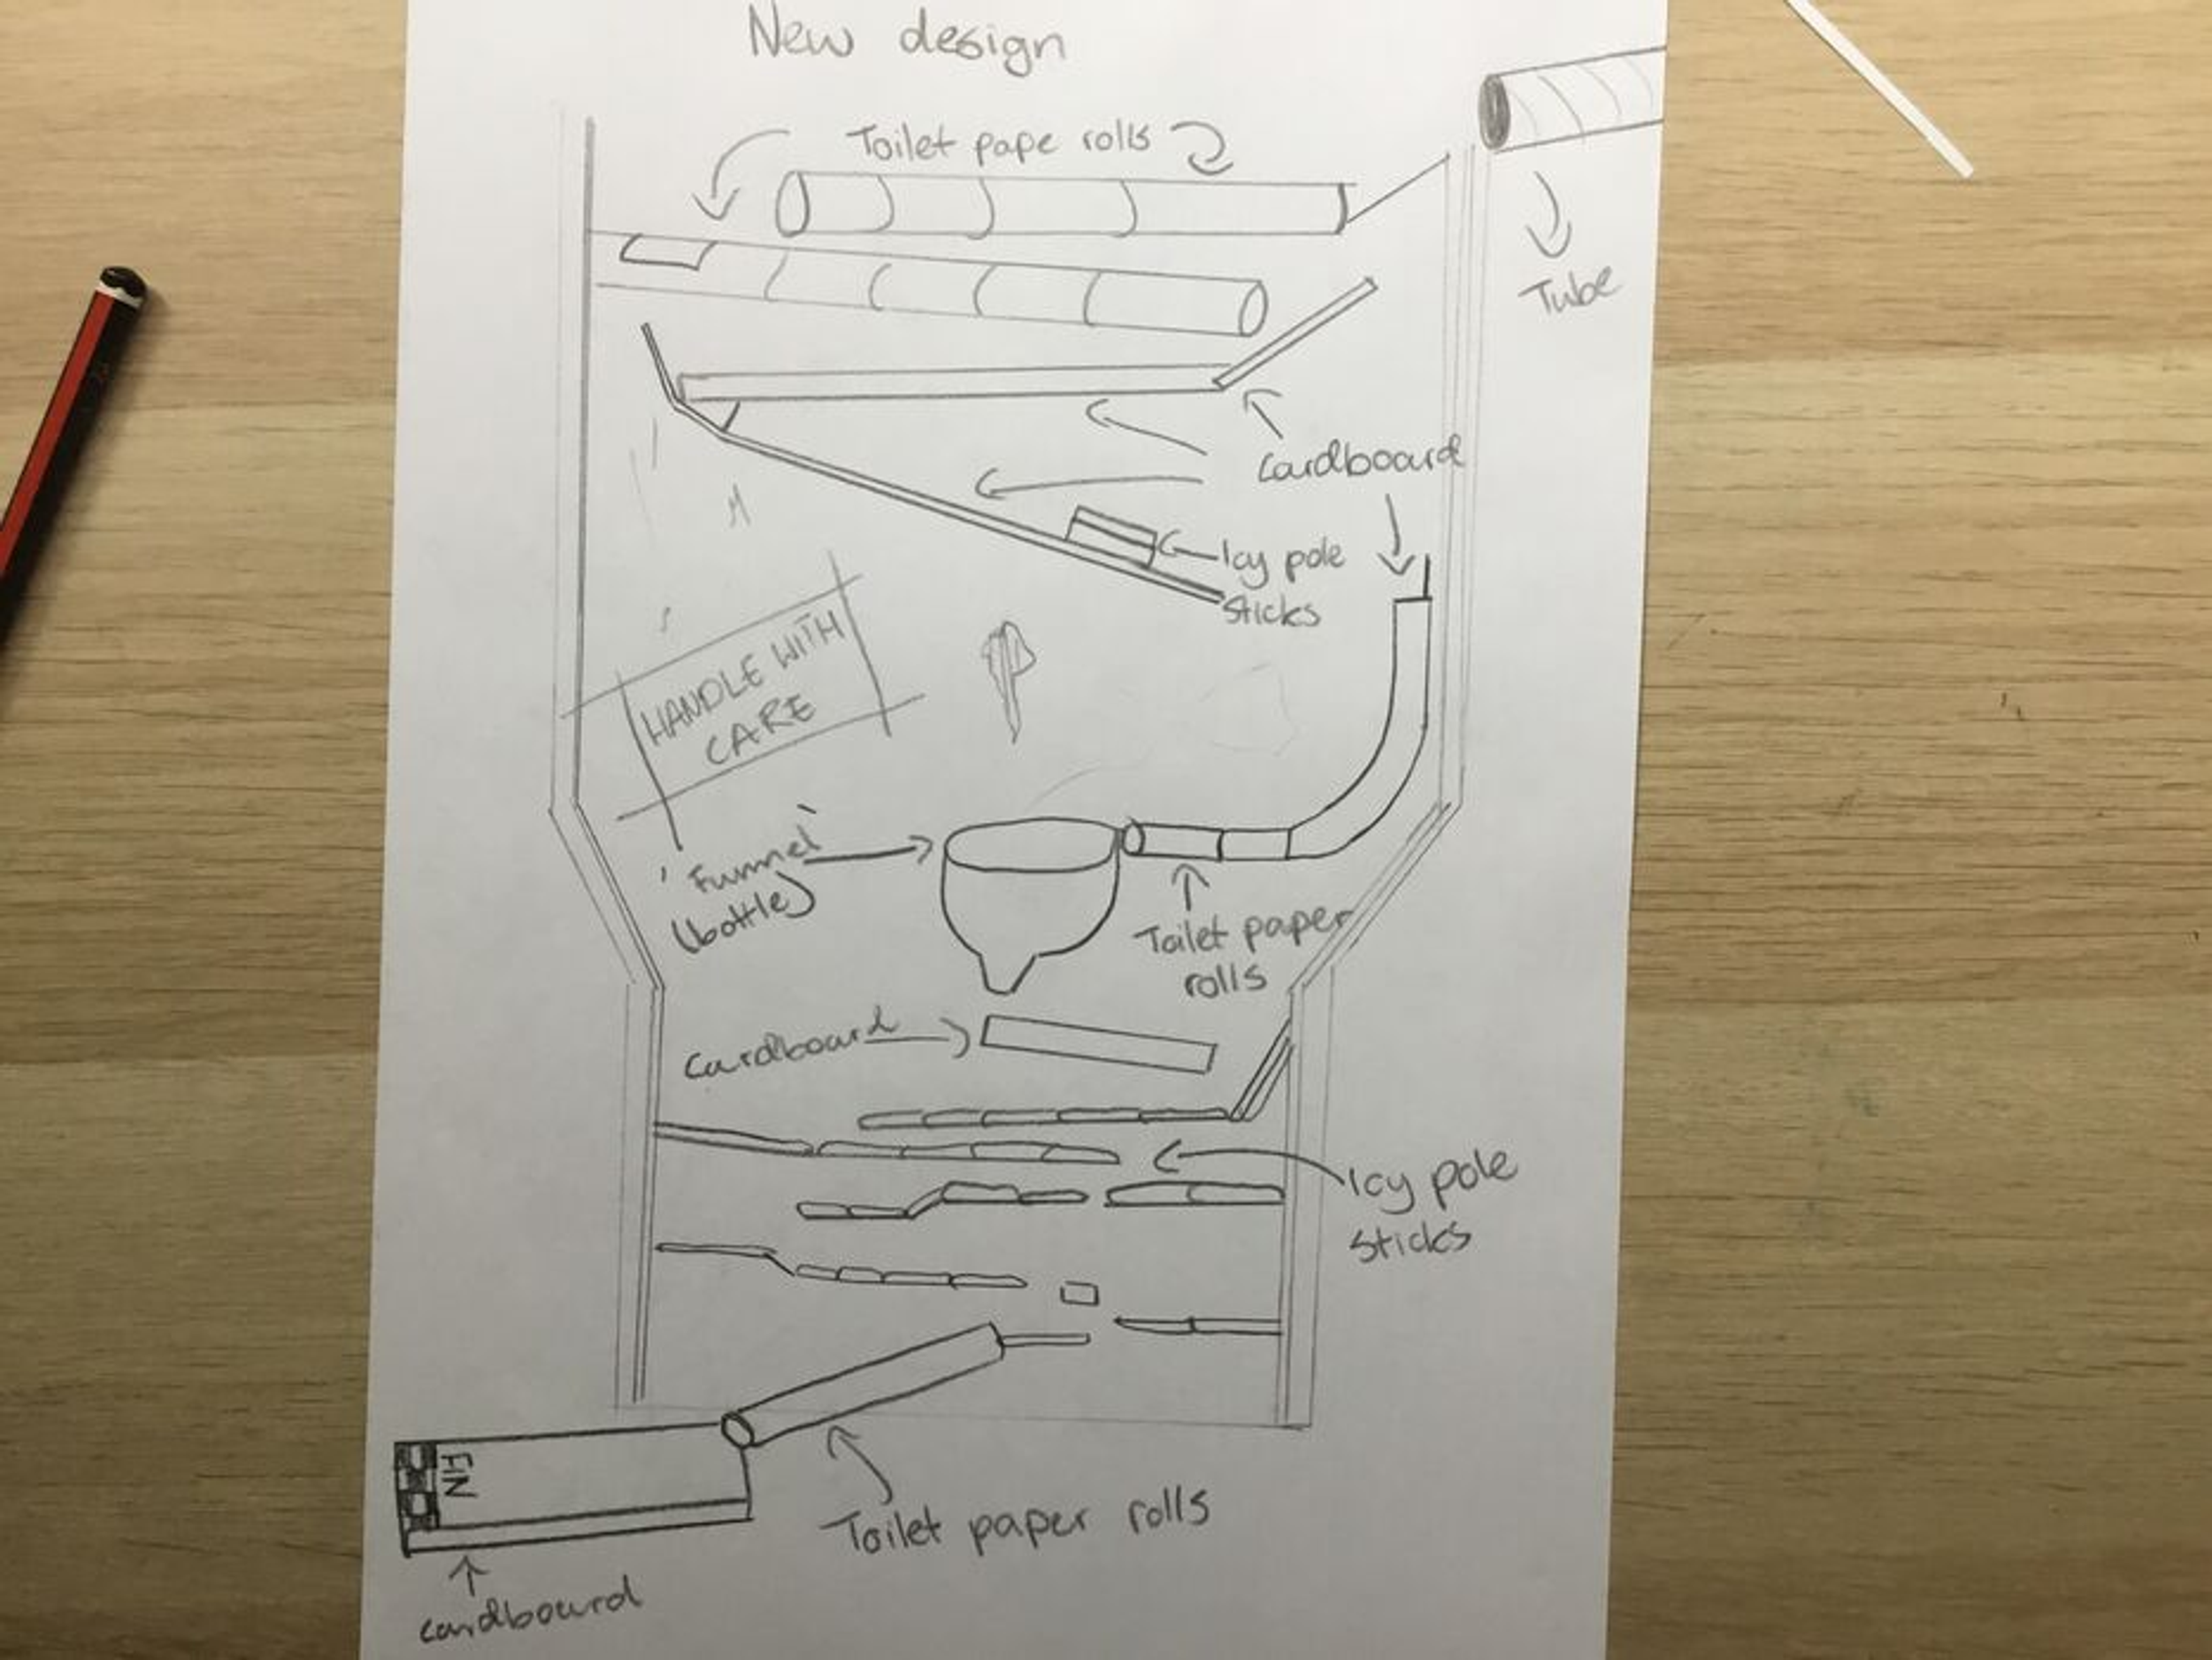 New design
Toilet pape rolls
Tube
Cardboard
Icy pole
sticks
HANDLE WITH
CARE
Funnel
(bottle)
Toilet paper
rolls
Cardboard
Icy pole
sticks
FIN
Toilet paper rolls
cardboard